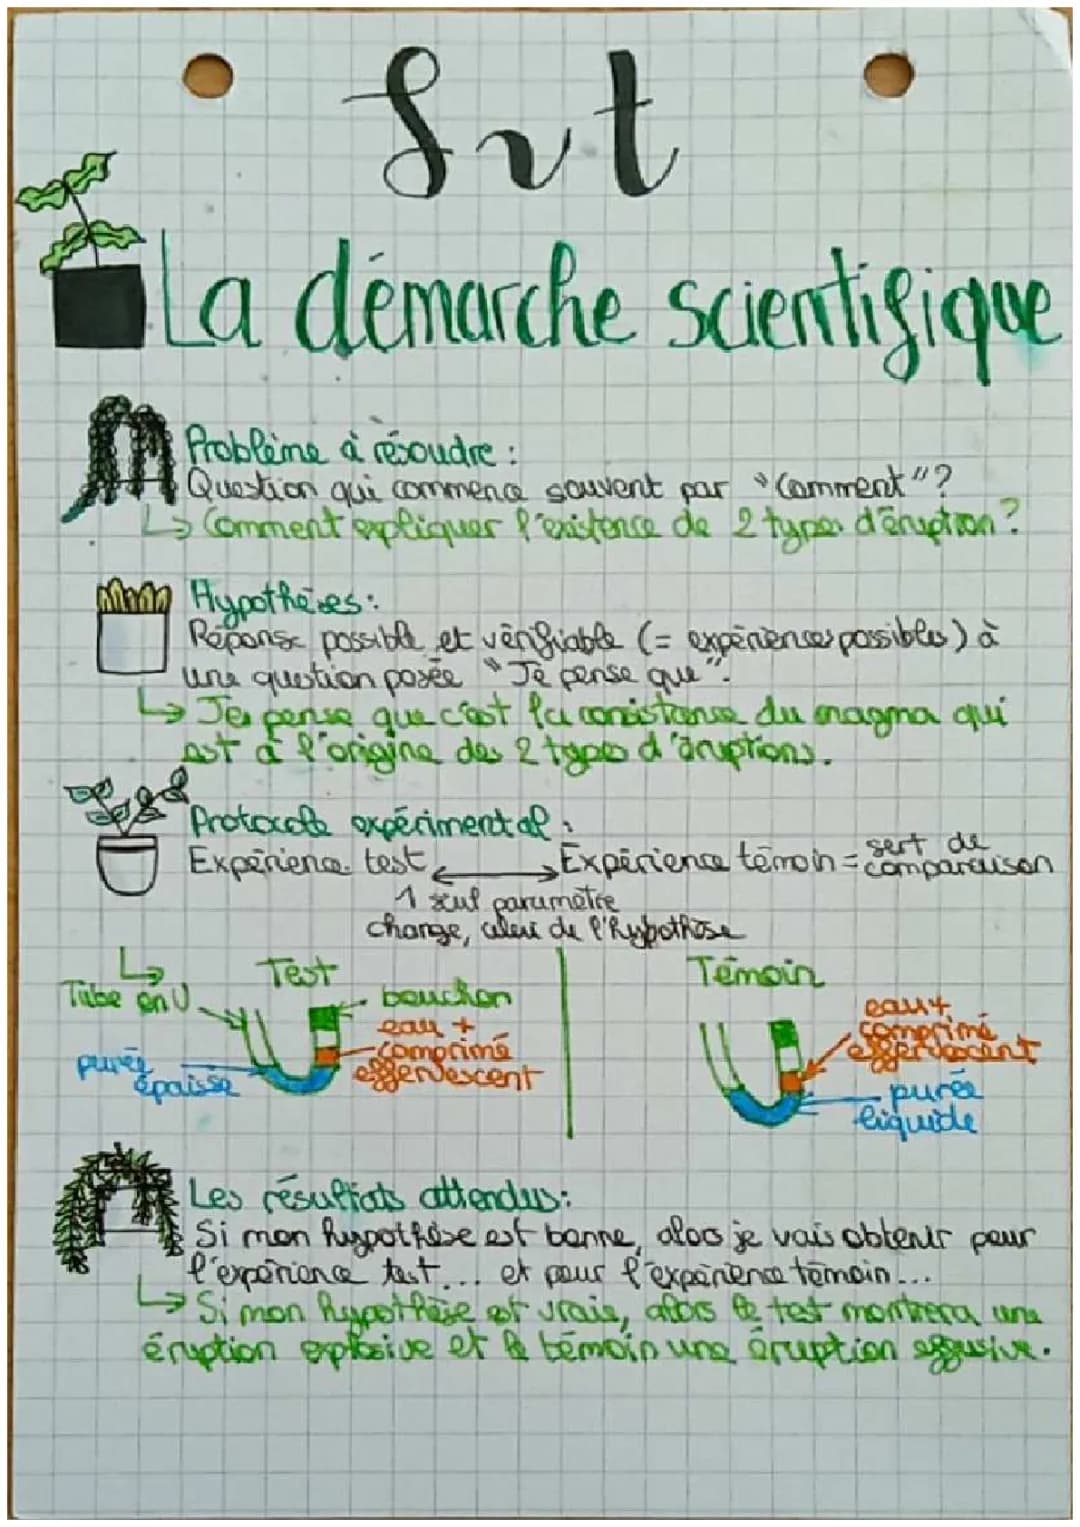 Svt
La démarche scientifique
Problème à résoudre :
Question qui commence souvent par "Comment"?
↳ Comment expliquer l'existence de 2 types d'éruption?
Hypothèses :
Réponse possible et vérifiable (= expériences possibles) à
une question posée "Je pense que".
↳ Je pense que c'est la consistance du magma qui
est à l'origine des 2 types d'éruptions.
Protocole expérimental :
Expérience test ↔ Expérience témoin = sert de
comparaison
1 seul paramètre
change, celui de l'hypothèse
↳
Test
Témoin
Tube en U
bouchon
eau +
comprimé
effervescent
purée
épaisse
eau +
comprimé
effervescent
purée
liquide
Les résultats attendus :
Si mon hypothèse est bonne, alors je vais obtenir pour
l'expérience test... et pour l'expérience témoin...
↳ Si mon hypothèse est vraie, alors le test montrera une
éruption explosive et le témoin une éruption effusive.